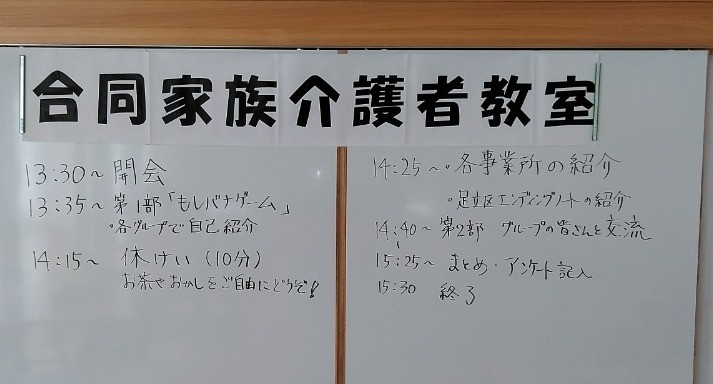 合同家族介護者教室
13:30～ 開会
13:35～ 第1部「もしバナゲーム」
・各グループで自己紹介
14:15～ 休けい（10分）
お茶やおかしをご自由にどうぞ!
14:25～・各事業所の紹介
・足立区エンディングノートの紹介
14:40～ 第2部 グループの皆さんと交流
15:25～ まとめ・アンケート記入
15:30 終了